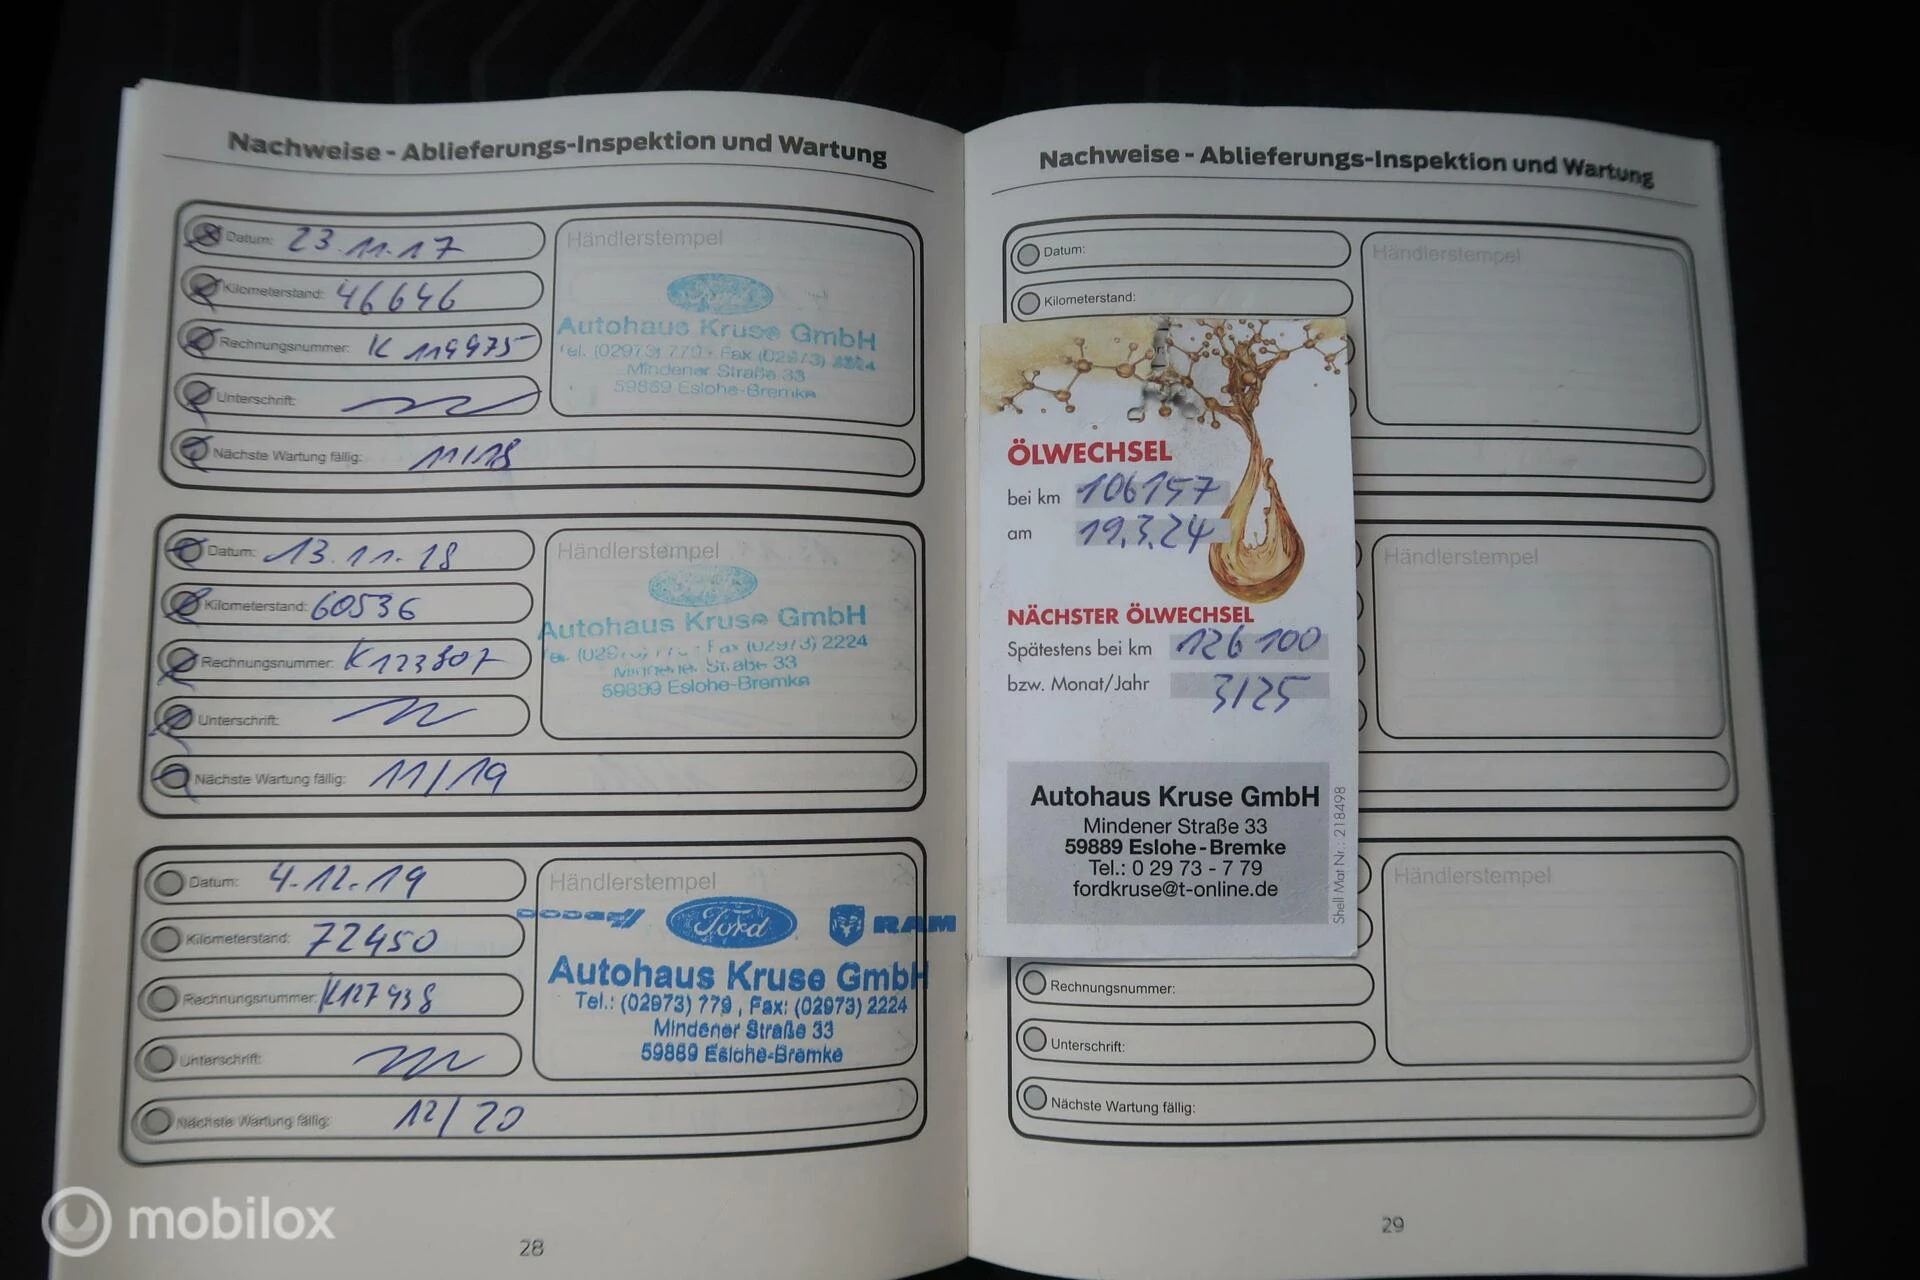 Nachweise - Ablieferungs-Inspektion und Wartung
Datum: 23.11.17
Kilometerstand: 46646
Rechnungsnummer: K 119975
Unterschrift:
Nächste Wartung fällig: 11/18
Händlerstempel
Ford
Autohaus Kruse GmbH
Tel. (02973) 779 · Fax (02973) 2224
Mindener Straße 33
59889 Eslohe-Bremke
Datum: 13.11.18
Kilometerstand: 60536
Rechnungsnummer: K123807
Unterschrift:
Nächste Wartung fällig: 11/19
Händlerstempel
Autohaus Kruse GmbH
Fax (02973) 2224
Mindener Straße 33
59889 Eslohe-Bremke
Datum: 4.12.19
Kilometerstand: 72450
Rechnungsnummer: K127938
Unterschrift:
Nächste Wartung fällig: 12/20
Händlerstempel
DODGE Ford RAM
Autohaus Kruse GmbH
Tel.: (02973) 779, Fax: (02973) 2224
Mindener Straße 33
59889 Eslohe-Bremke
28
Nachweise - Ablieferungs-Inspektion und Wartung
Datum:
Kilometerstand:
Händlerstempel
ÖLWECHSEL
bei km 106157
am 19.3.24
NÄCHSTER ÖLWECHSEL
Spätestens bei km 126100
bzw. Monat/Jahr 3/25
Autohaus Kruse GmbH
Mindener Straße 33
59889 Eslohe-Bremke
Tel.: 0 29 73 - 7 79
fordkruse@t-online.de
Shell Mat Nr.: 218498
Händlerstempel
Händlerstempel
Rechnungsnummer:
Unterschrift:
Nächste Wartung fällig:
29
mobilox